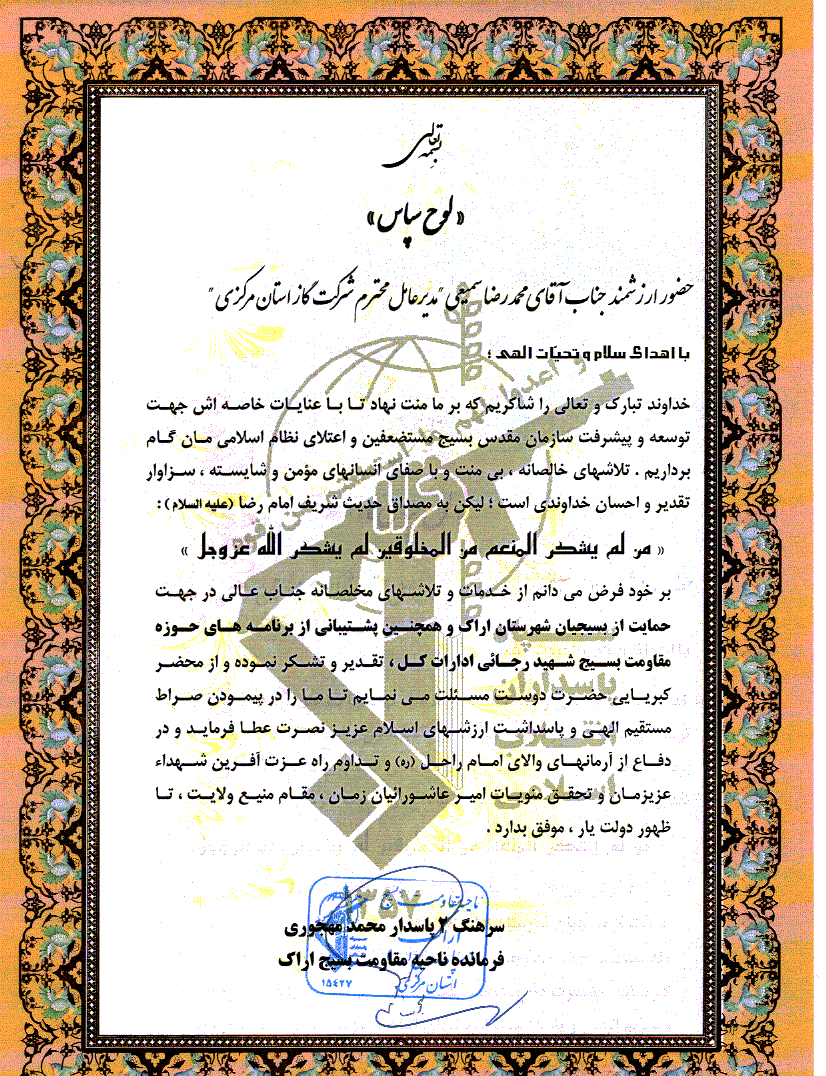 بسمه تعالی
«لوح سپاس»
حضور ارزشمند جناب آقای محمدرضا سمیعی "مدیرعامل محترم شرکت گاز استان مرکزی"
با اهداء سلام و تحیات الهی ؛
خداوند تبارک و تعالی را شاکریم که بر ما منت نهاد تا با عنایات خاصه اش جهت
توسعه و پیشرفت سازمان مقدس بسیج مستضعفین و اعتلای نظام اسلامی مان گام
برداریم . تلاشهای خالصانه ، بی منت و با صفای انسانهای مؤمن و شایسته ، سزاوار
تقدیر و احسان خداوندی است ؛ لیکن به مصداق حدیث شریف امام رضا (علیه السلام) :
« من لم یشکر المنعم من المخلوقین لم یشکر الله عز وجل »
بر خود فرض می دانم از خدمات و تلاشهای مخلصانه جناب عالی در جهت
حمایت از بسیجیان شهرستان اراک و همچنین پشتیبانی از برنامه های حوزه
مقاومت بسیج شهید رجائی ادارات کل ، تقدیر و تشکر نموده و از محضر
کبریایی حضرت دوست مسئلت می نمایم تا ما را در پیمودن صراط
مستقیم الهی و پاسداشت ارزشهای اسلام عزیز نصرت عطا فرماید و در
دفاع از آرمانهای والای امام راحل (ره) و تداوم راه عزت آفرین شهداء
عزیزمان و تحقق منویات امیر عاشورائیان زمان ، مقام منیع ولایت ، تا
ظهور دولت یار ، موفق بدارد .
۱۳۵۷
سرهنگ ۲ پاسدار محمد مهجوری
فرمانده ناحیه مقاومت بسیج اراک
استان مرکزی
۱۵۴۲۷